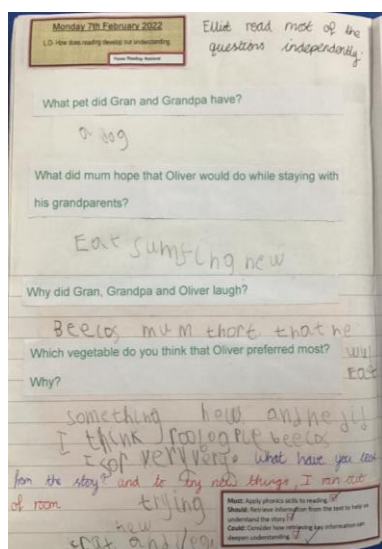 Monday 7th February 2022
L.O- How does reading develop our understanding
Elliot read most of the
questions independently.
What pet did Gran and Grandpa have?
a dog
What did mum hope that Oliver would do while staying with
his grandparents?
Eat sumfing new
Why did Gran, Grandpa and Oliver laugh?
Beecos mum thort that he
wul
Eat
Which vegetable do you think that Oliver preferred most?
Why?
something new and he did
I think beecos
I very what have you
from the story? and to try new things, I ran out
of room
trying
new
Must: Apply phonics skills to reading.
Should: Retrieve information from the text to help us
understand the story
Could: Consider how retrieving key information can
deepen understanding.